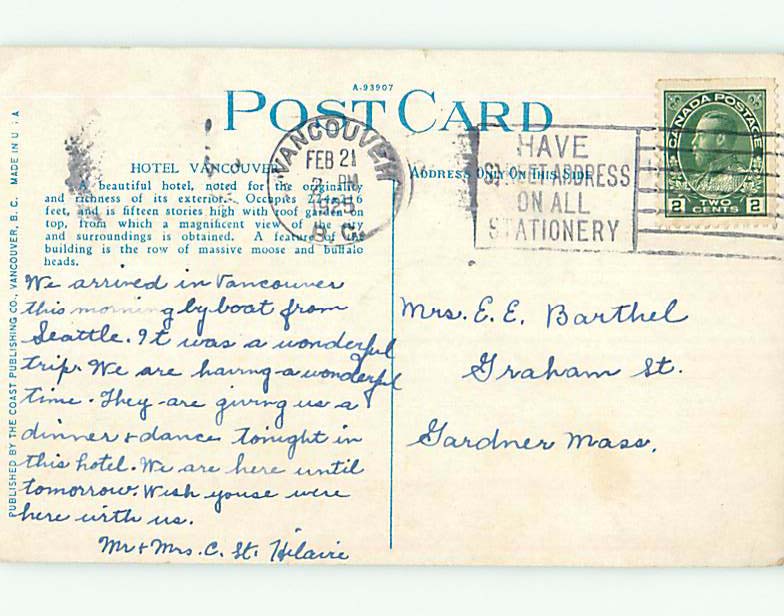 A-93907
POST CARD
HOTEL VANCOUVER
A beautiful hotel, noted for the originality
and richness of its exterior. Occupies
feet, and is fifteen stories high with roof garden on
top, from which a magnificent view of the city
and surroundings is obtained. A feature of the
building is the row of massive moose and buffalo
heads.
ADDRESS ONLY ON THIS SIDE
VANCOUVER
FEB 21
PM
1925
B.C.
HAVE
STREET ADDRESS
ON ALL
STATIONERY
CANADA POSTAGE
2 TWO CENTS 2
PUBLISHED BY THE COAST PUBLISHING CO., VANCOUVER, B. C. MADE IN U S A
We arrived in Vancouver
this morning by boat from
Seattle. It was a wonderful
trip. We are having a wonderful
time. They are giving us a
dinner & dance tonight in
this hotel. We are here until
tomorrow. Wish youse were
here with us.
Mr & Mrs. C. St. Hilaire
Mrs. E. E. Barthel
Graham St.
Gardner Mass.